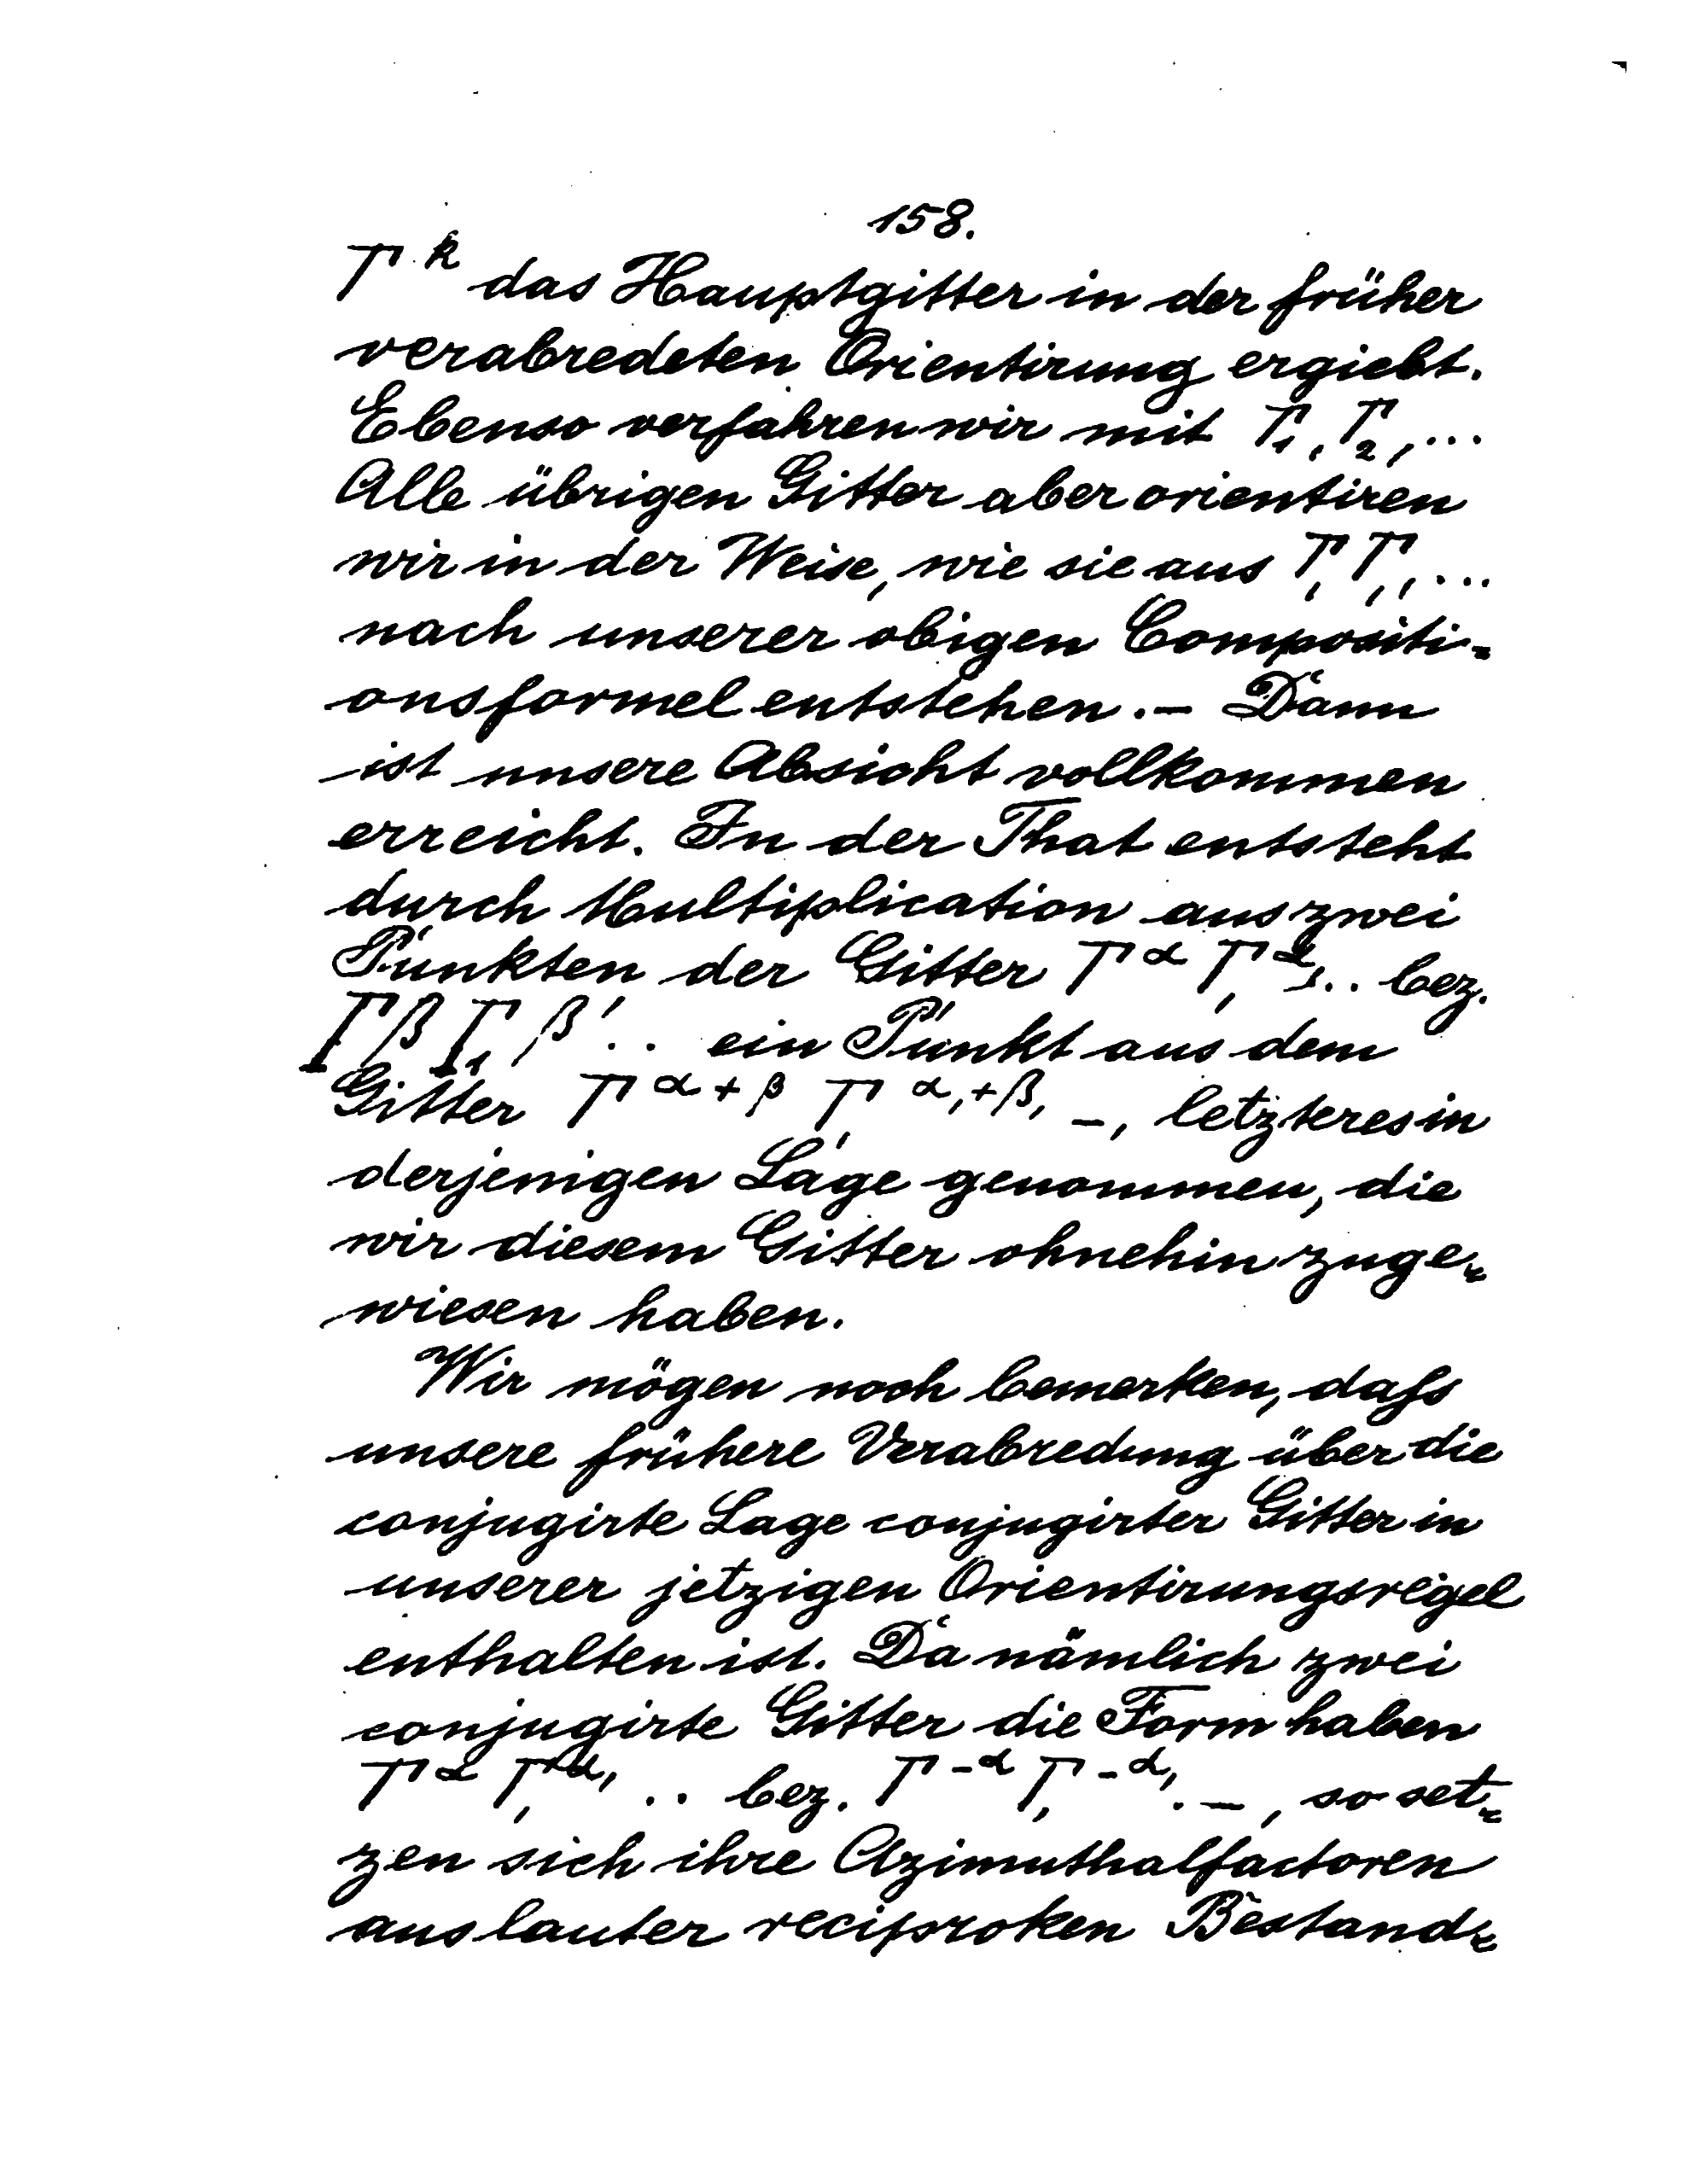 158.
Γ^k das Hauptgitter in der früher
verabredeten Orientirung ergiebt.
Ebenso verfahren wir mit Γ₁, Γ₂, ...
Alle übrigen Gitter aber orientiren
wir in der Weise, wie sie aus Γ, Γ,, ...
nach unserer obigen Compositi-
onsformel entstehen. – Dann
ist unsere Absicht vollkommen
erreicht. In der That entsteht
durch Multiplication aus zwei
Punkten der Gitter Γ^α Γ,^α, .. bez.
Γ^β Γ₁^β' .. ein Punkt aus dem
Gitter Γ^α+β Γ,^α,+β, –, letzteres in
derjenigen Lage genommen, die
wir diesem Gitter ohnehin zuge-
wiesen haben.
Wir mögen noch bemerken, dafs
unsere frühere Verabredung über die
conjugirte Lage conjugirter Gitter in
unserer jetzigen Orientirungsregel
enthalten ist. Da nämlich zwei
conjugirte Gitter die Form haben
Γ^α Γ,^α, .. bez. Γ^-α Γ,^-α, . –, so set-
zen sich ihre Azimuthalfactoren
aus lauter reciproken Bestand-